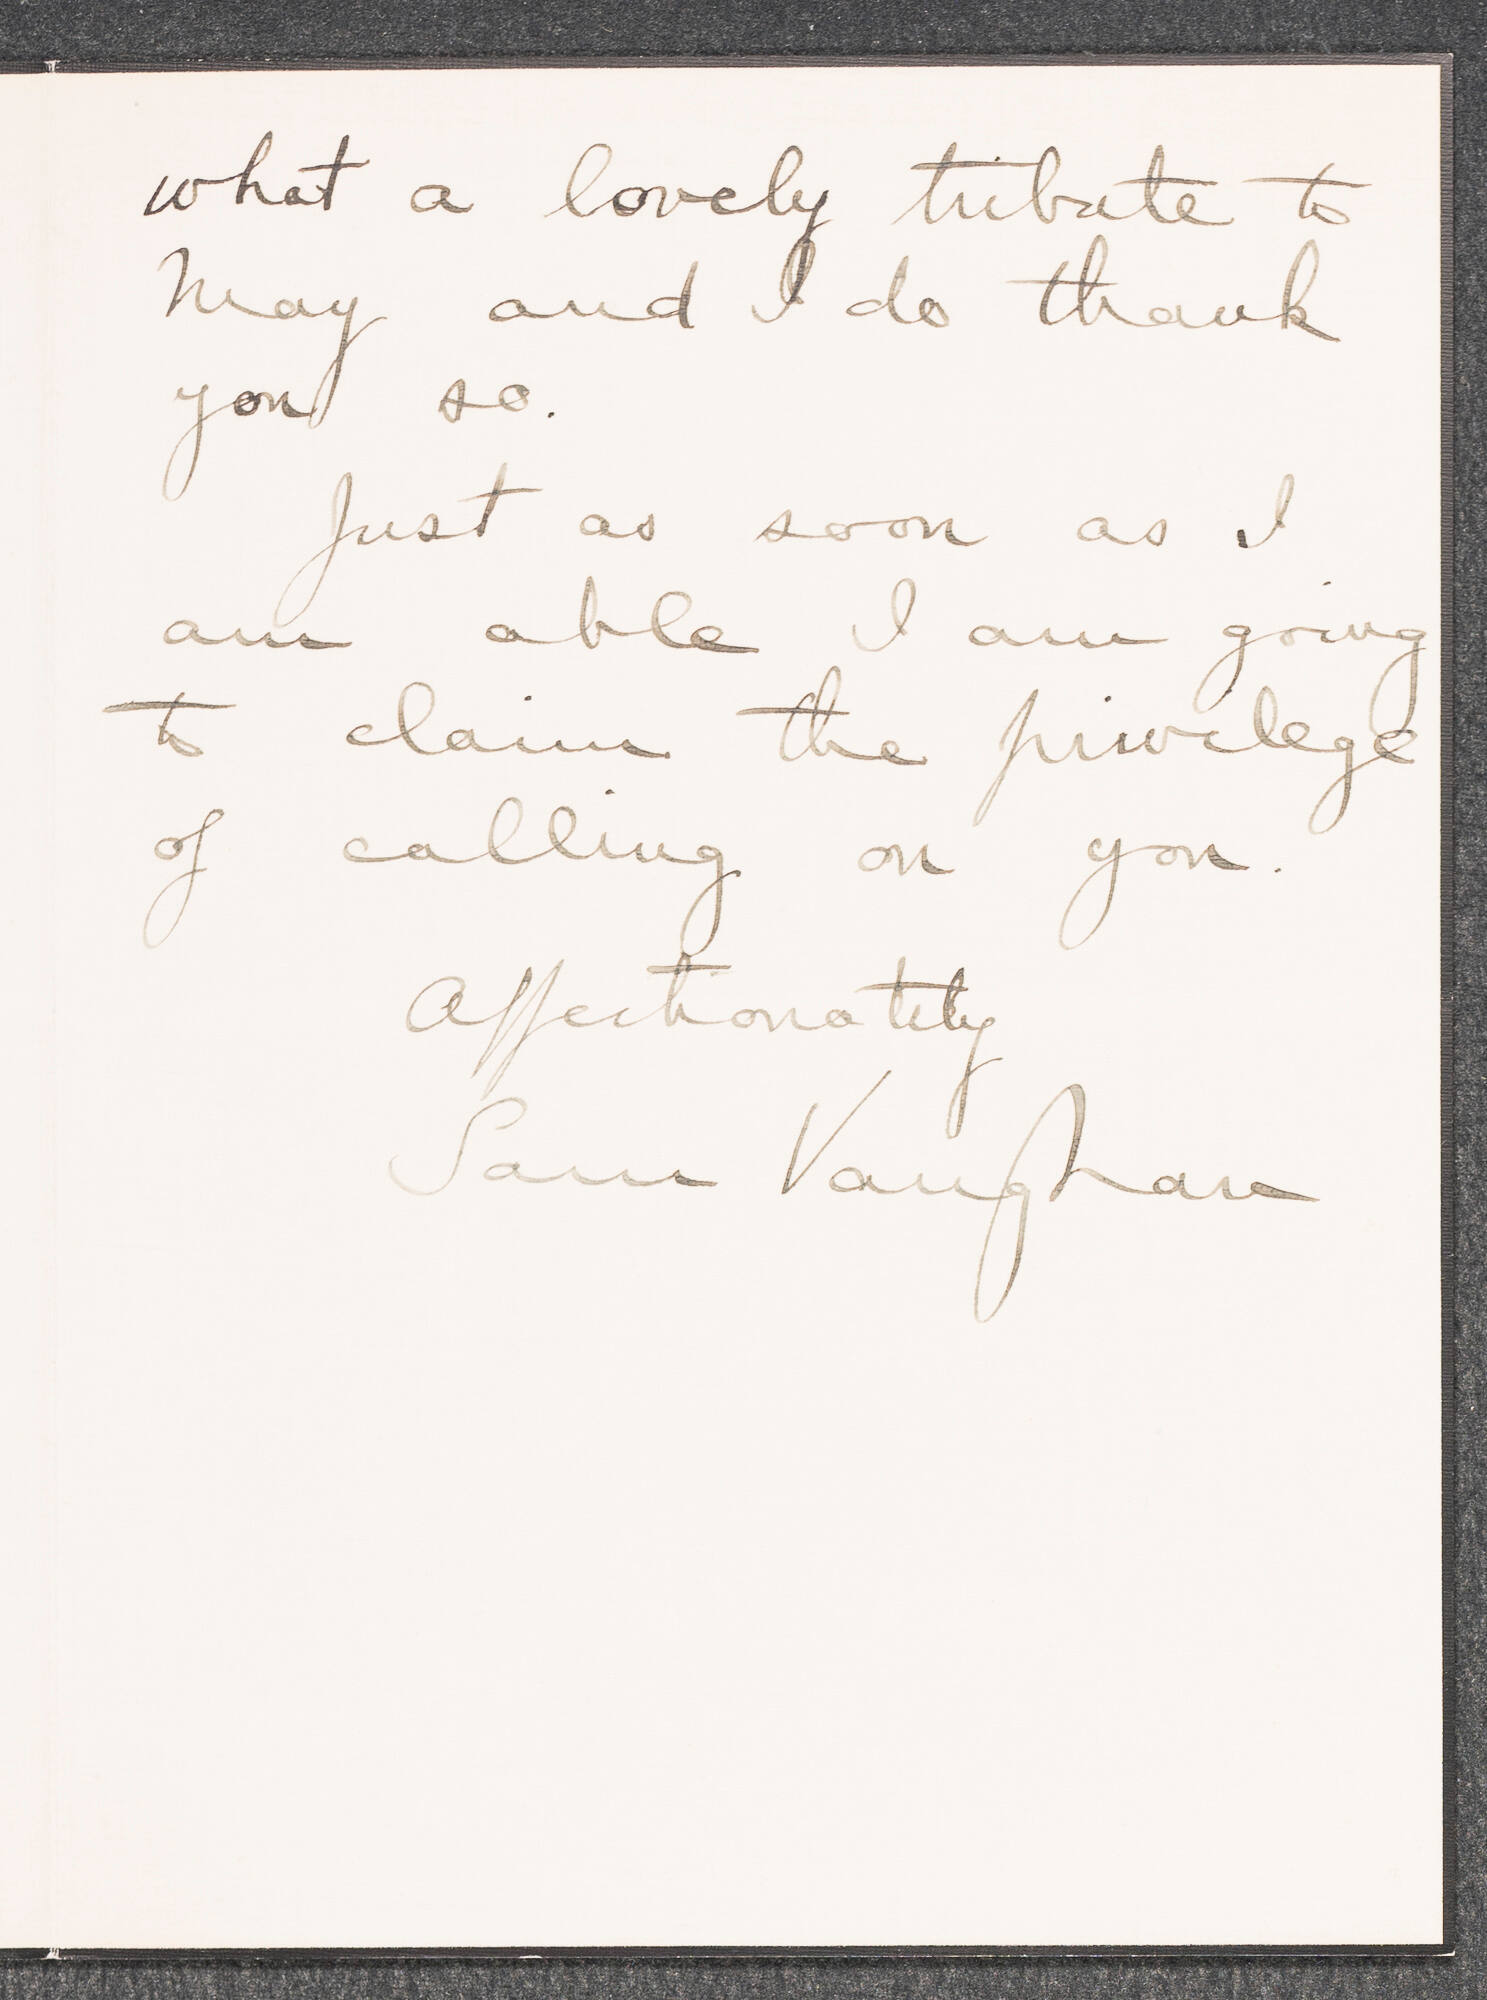 what a lovely tribute to
May and I do thank
you so.
Just as soon as I
am able I am going
to claim the privilege
of calling on you.
Affectionately
Sam Vaughan